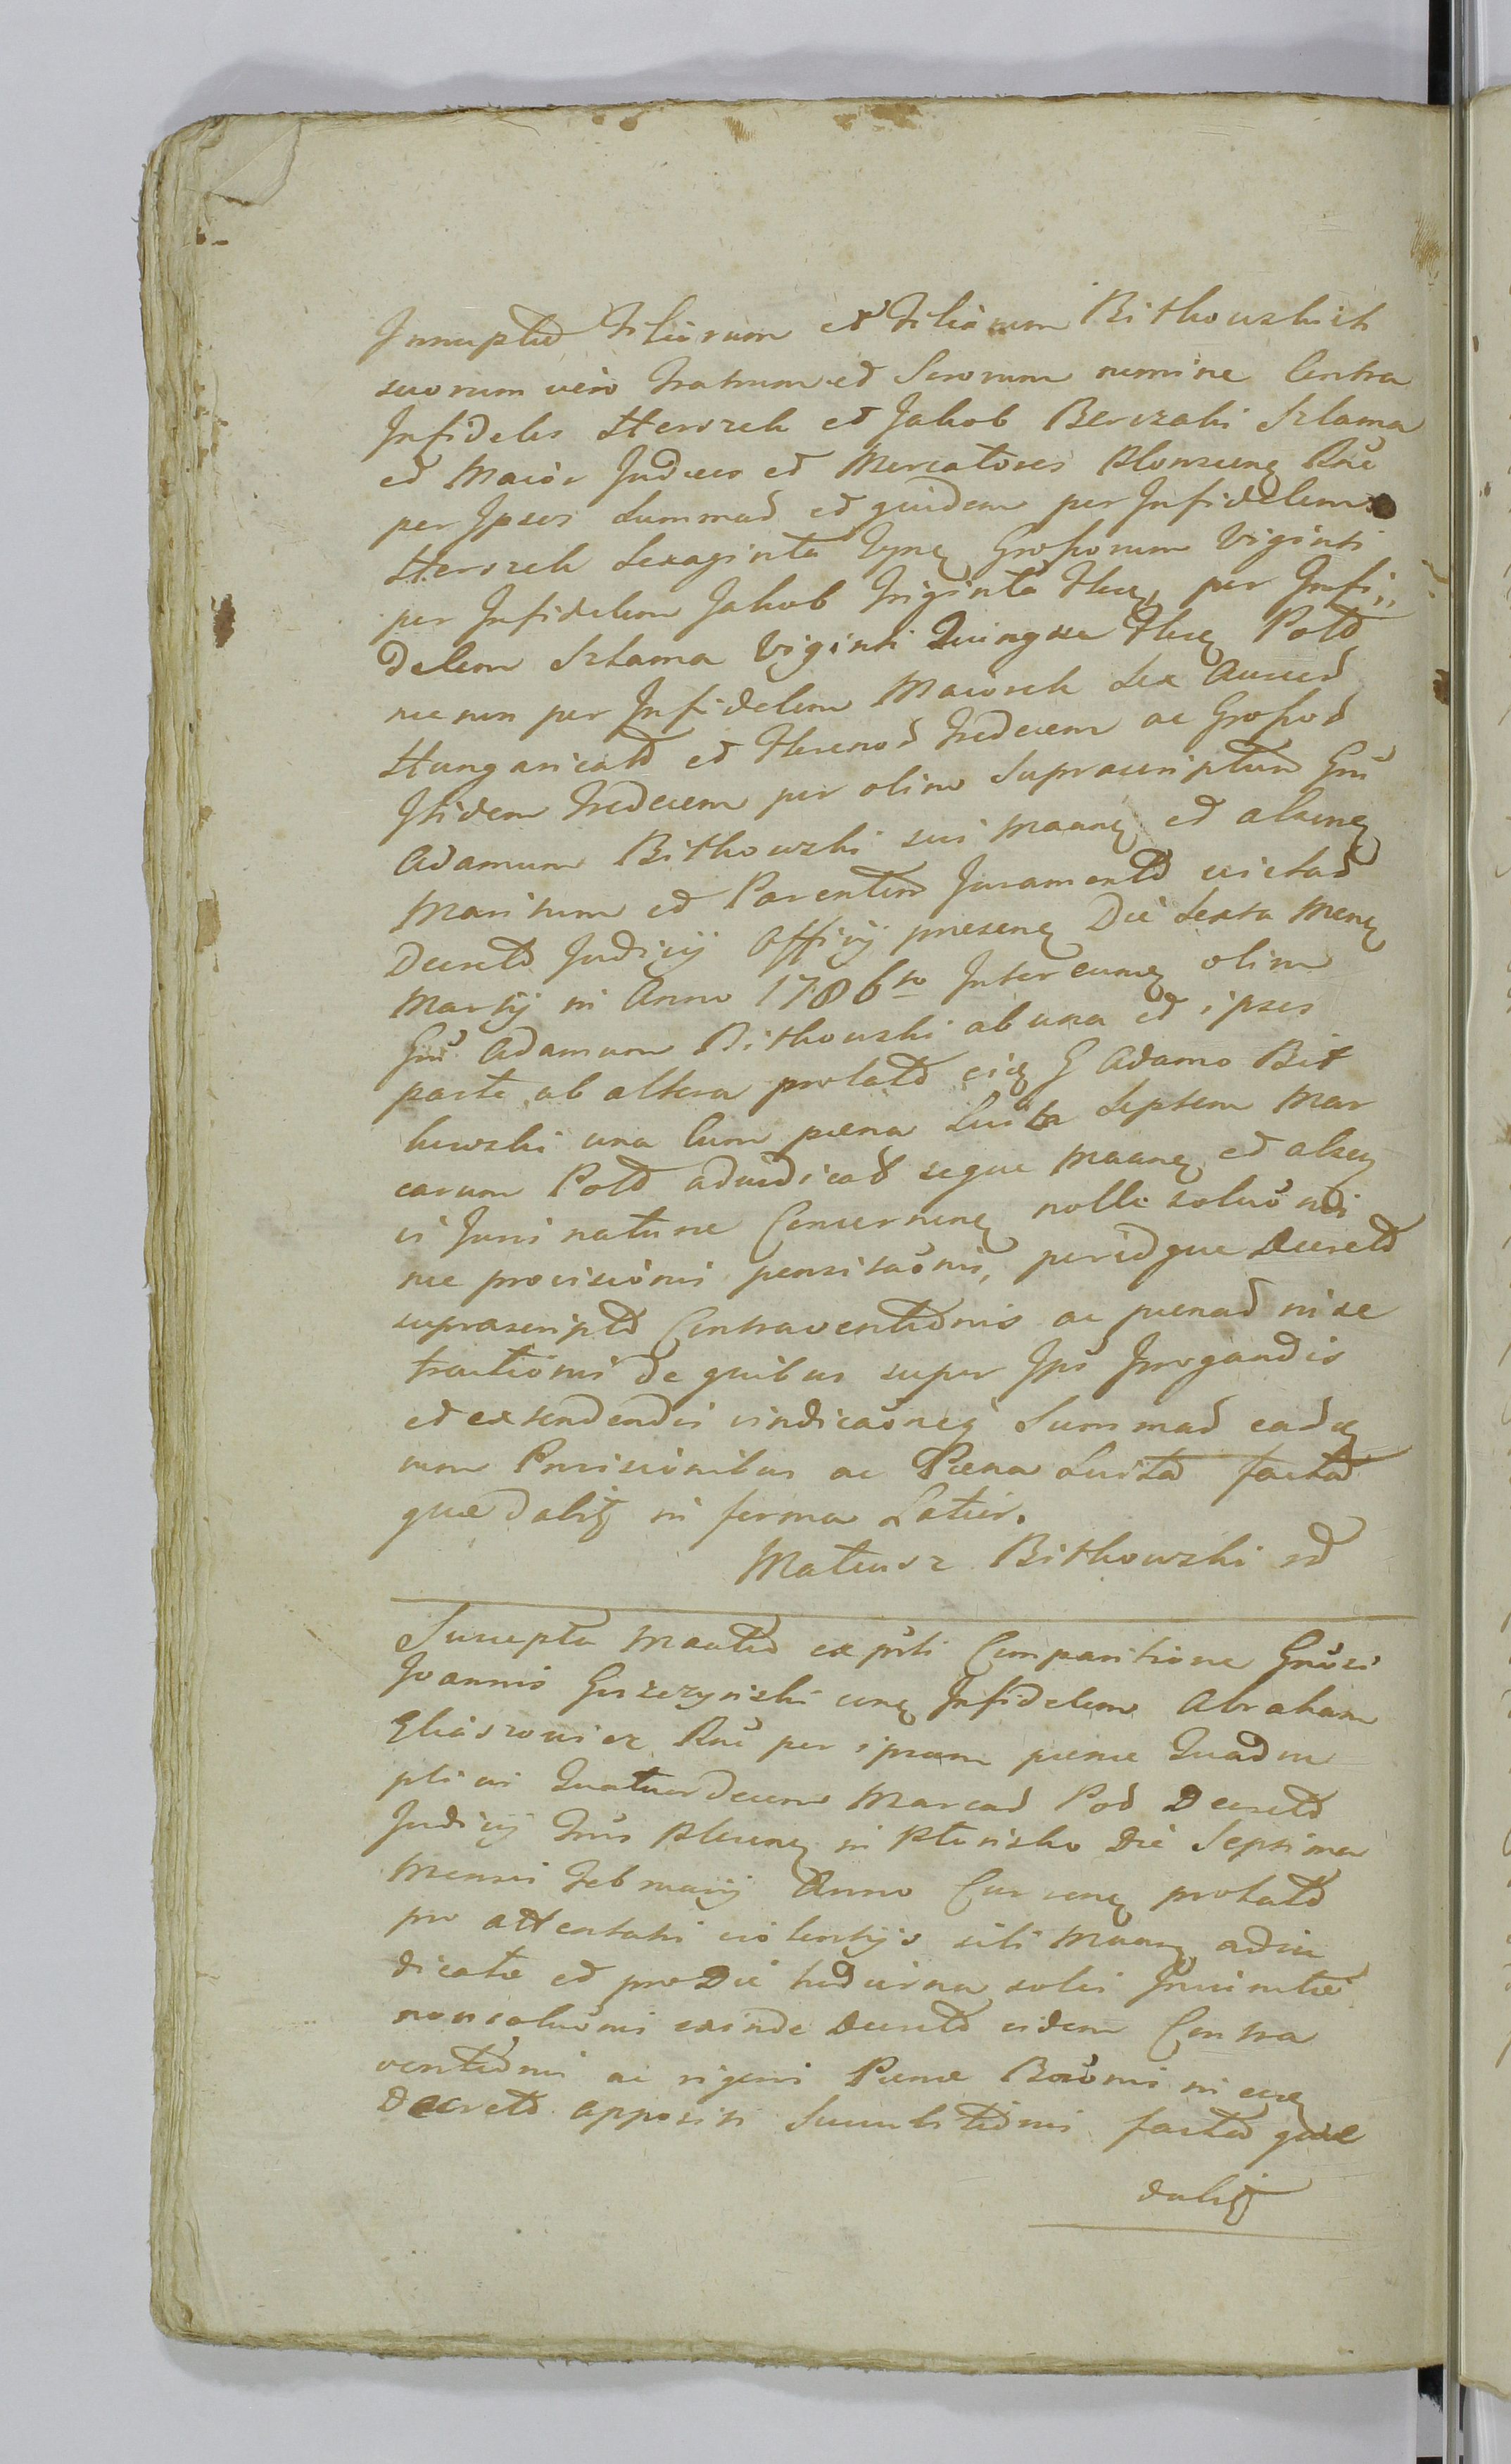 Innuptud Filiorum et Filiarum Bitkowskich
suorum vero Fratrum et Sororum nomine Contra
Infideles Herszek et Jakob Berszaki Szlama
et Maior Judeos et Mercatores Plonscens Rne
per Ipsos Summas et quidem per Infidelem
Herszek Sexaginta Tyns Groszorum Viginti
per Infidelem Jakob Triginta Flus, per Infi„
delem Szlama Viginti Quinque Flus Pold
necnon per Infidelem Maiorek Sex Aureos
Hungaricald et Florenos Tredecem ac Groszos
Itidem Tredecem per olim Suprascriptum Gnū
Adamum Bitkowski sui Maans et alsens
Maritum et Parentem Juramentd
Decretd Judicij Officij presens Die Sexta Mens
Martij in Anno 1786to Inter eums olim
Gnū Adamum Bitkowski ab una et ipsos
parte ab altera prolatd eids G Adamo Bit
kowski una Cum poena Luita Septem Mar
carum Pold adiudicat seque Maans et alsens
is Juri nature Concernens nolle soluōndi
nec provisionis pensitaōnis, peridque Decretd
suprascriptd Contraventidnis ac poenad in se
tractionis de quibus super Ips Irrogandis
et extendendis vindicaōneq Summad eads
cum Provisionibus ac Poena Luitd factad
quae dabits in forma Latior.
Mateusz Bitkowski sd
Suscepta Maatid ex pnti Comparitione Gnōsi
Joannis Goszczynski cons Infidelem Abraham
Eliaszowicz Rne per ipsum poenae Quadru
plicis Quatuordecem Marcad Pod Decretd
Judicij Trus Plocens in Płonsko Die Septima
Mensis Februarij Anno Currens prolatd
pro attentatis violentijs sibi Maans adiu
dicatae et pro Die hodierna solvi
non soluōnis exinde Decretd eidem Contra
ventidnis ac rigoris Poenae Banōnis in eods
Decretd appositi Succubitidnis factad quae
dabits